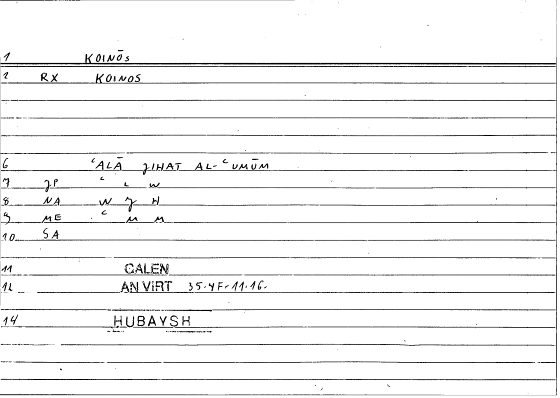 1 KOINŌS
2 RX KOINOS
6 ʿALĀ JIHAT AL-ʿUMŪM
7 JP ʿ L W
8 NA W J H
9 ME ʿ M M
10 SA
11 GALEN
12 AN VIRT 35.4F.11.16.
14 HUBAYSH